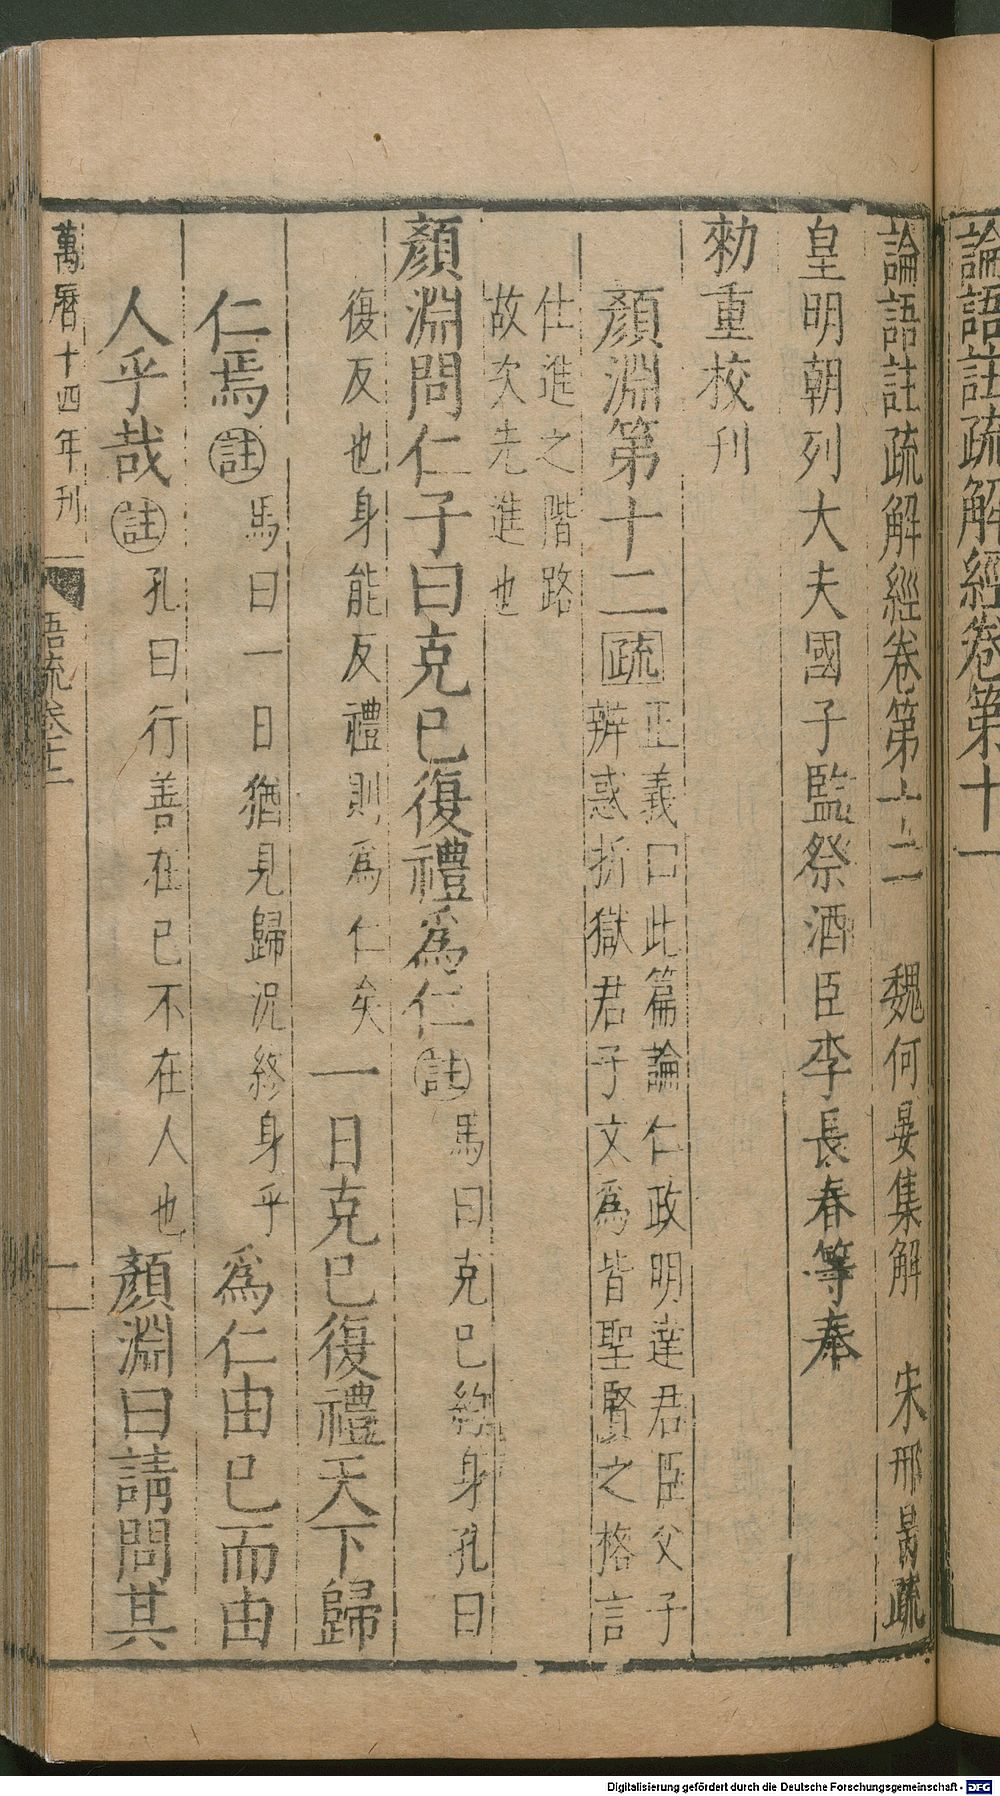 論語註疏解經卷第十一
論語註疏解經卷第十二 魏何晏集解 宋邢昺疏
皇明朝列大夫國子監祭酒臣李長春等奉
勑重校刊
顏淵第十二疏正義曰此篇論仁政明達君臣父子
辨惑折獄君子文爲皆聖賢之格言
仕進之階路
故次先進也
顏淵問仁子曰克已復禮爲仁註馬曰克已約身孔曰
復反也身能反禮則爲仁矣一日克已復禮天下歸
仁焉註馬曰一日猶見歸況終身乎爲仁由已而由
人乎哉註孔曰行善在已不在人也顏淵曰請問其
萬曆十四年刊 語疏卷十二 一
Digitalisierung gefördert durch die Deutsche Forschungsgemeinschaft - DFG